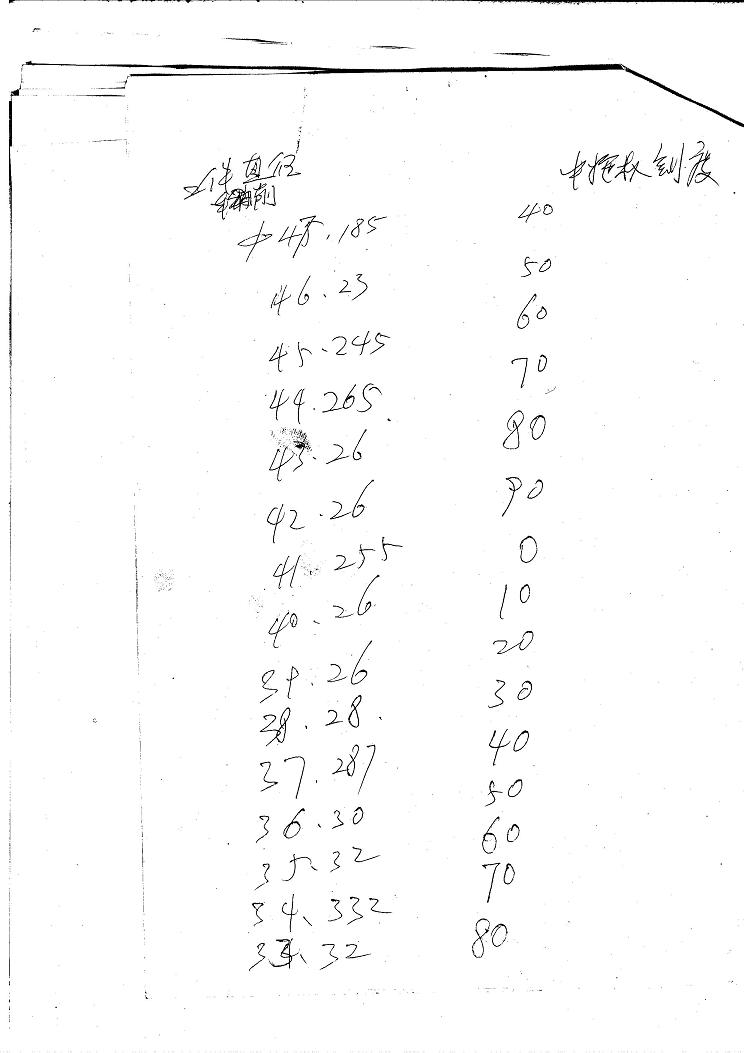 工件直径 中拖板刻度
前
φ47.185 40
46.23 50
45.245 60
44.265 70
43.26 80
42.26 90
41.255 0
40.26 10
39.26 20
38.28 30
37.287 40
36.30 50
35.32 60
34.332 70
33.32 80